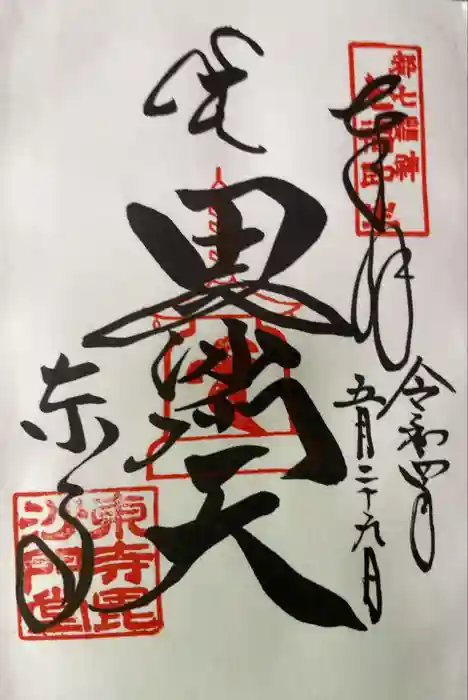 都七福神
奉拝
令和四年
五月二十九日
毘沙門天
東寺
東寺毘
沙門堂